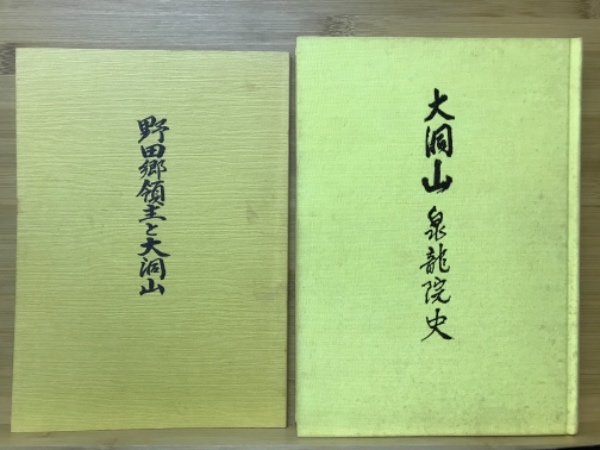 野田郷領主と大洞山
大洞山 泉龍院史